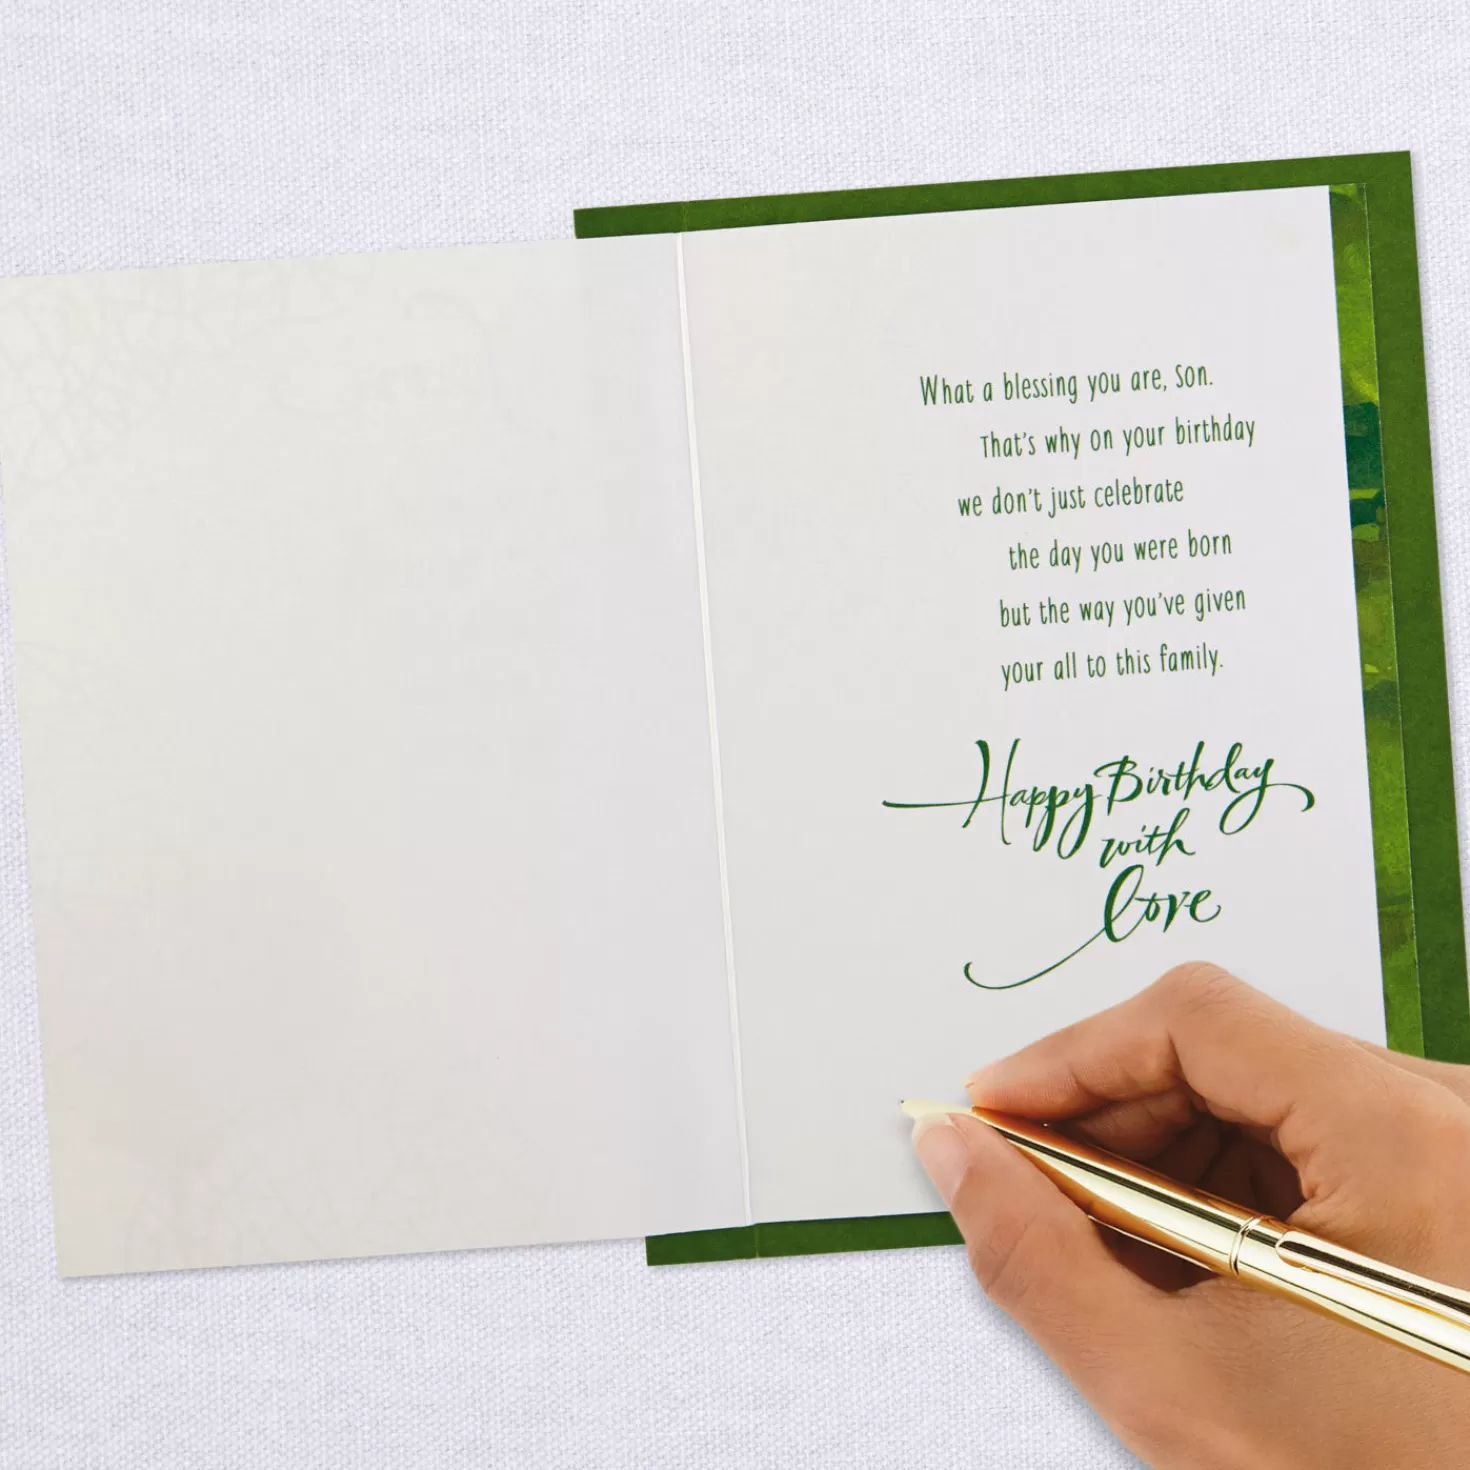 What a blessing you are, Son.
That's why on your birthday
we don't just celebrate
the day you were born
but the way you've given
your all to this family.
Happy Birthday
with
Love